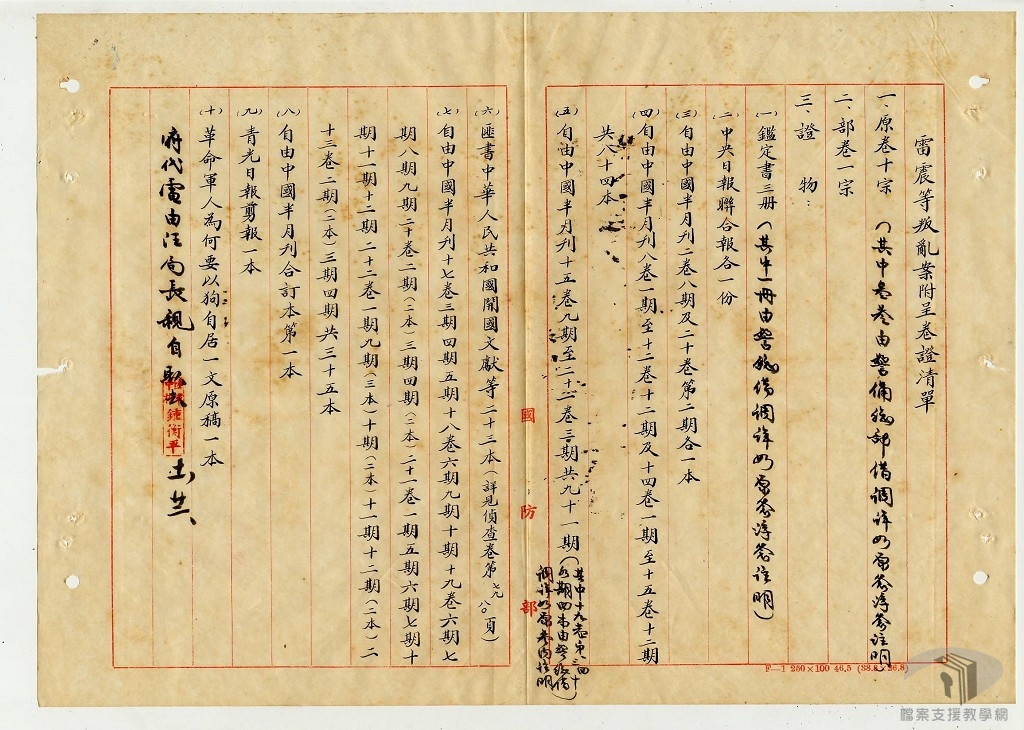 雷震等叛亂案附呈卷證清單
一、原卷十宗（其中叁卷由警備總部借調詳如原卷浮簽註明）
二、部卷一宗
三、證物：
㈠鑑定書三册（其中一册由警總借調詳如原卷浮簽註明）
㈡中央日報聯合報各一份
㈢自由中國半月刊二卷八期及二十卷第二期各一本
㈣自由中國半月刊八卷一期至十二卷十二期及十四卷一期至十五卷十二期
共八十四本
㈤自由中國半月刊十五卷九期至二十二卷三期共九十一期
調詳如原卷內註明）
國防部
㈥匪書中華人民共和國開國文獻等二十三本（詳見偵查卷第七九八〇頁）
㈦自由中國半月刊十七卷三期四期五期十八卷六期九期十期十九卷六期七
期八期九期二十卷二期（二本）三期四期（二本）二十一卷一期五期六期七期十
期十一期十二期二十二卷一期九期（三本）十期（二本）十一期十二期（二本）二
十三卷二期（二本）三期四期共三十五本
㈧自由中國半月刊合訂本第一本
㈨青光日報剪報一本
㈩革命軍人為何要以狗自居一文原稿一本
府代電由汪局長親自取去
鍾衡平
F—1 250×100 46.5 (38.8×26.8)
檔案支援教學網